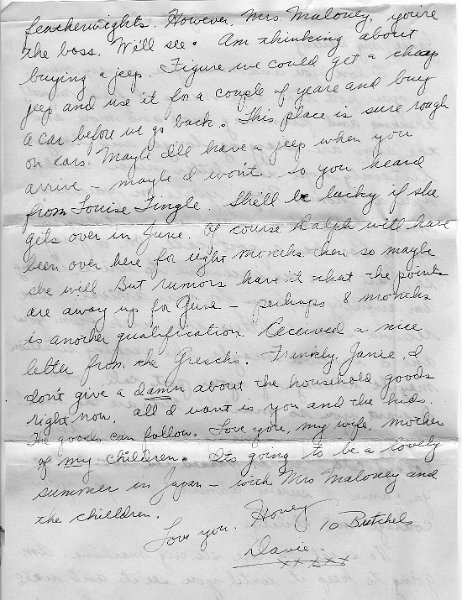 featherweights. However, Mrs Maloney, you're
the boss. We'll see. Am thinking about
buying a jeep. Figure we could get a cheap
jeep and use it for a couple of years and buy
a car before we go back. This place is sure rough
on cars. Maybe I'll have a jeep when you
arrive – maybe I won't. So you heard
from Louise Tingle. She'll be lucky if she
gets over in June. Of course Ralph will have
been over here for eight months then so maybe
she will. But rumors have it that the points
are away up for June – perhaps 8 months
is another qualification. Received a nice
letter from the Greschs. Frankly, Janie, I
don't give a damn about the household goods
right now. All I want is you and the kids.
The goods can follow. Love you, my wife, mother
of my children. It's going to be a lovely
summer in Japan – with Mrs Maloney and
the children.
Love you, Honey
Davie
To Butchels
xxxxx